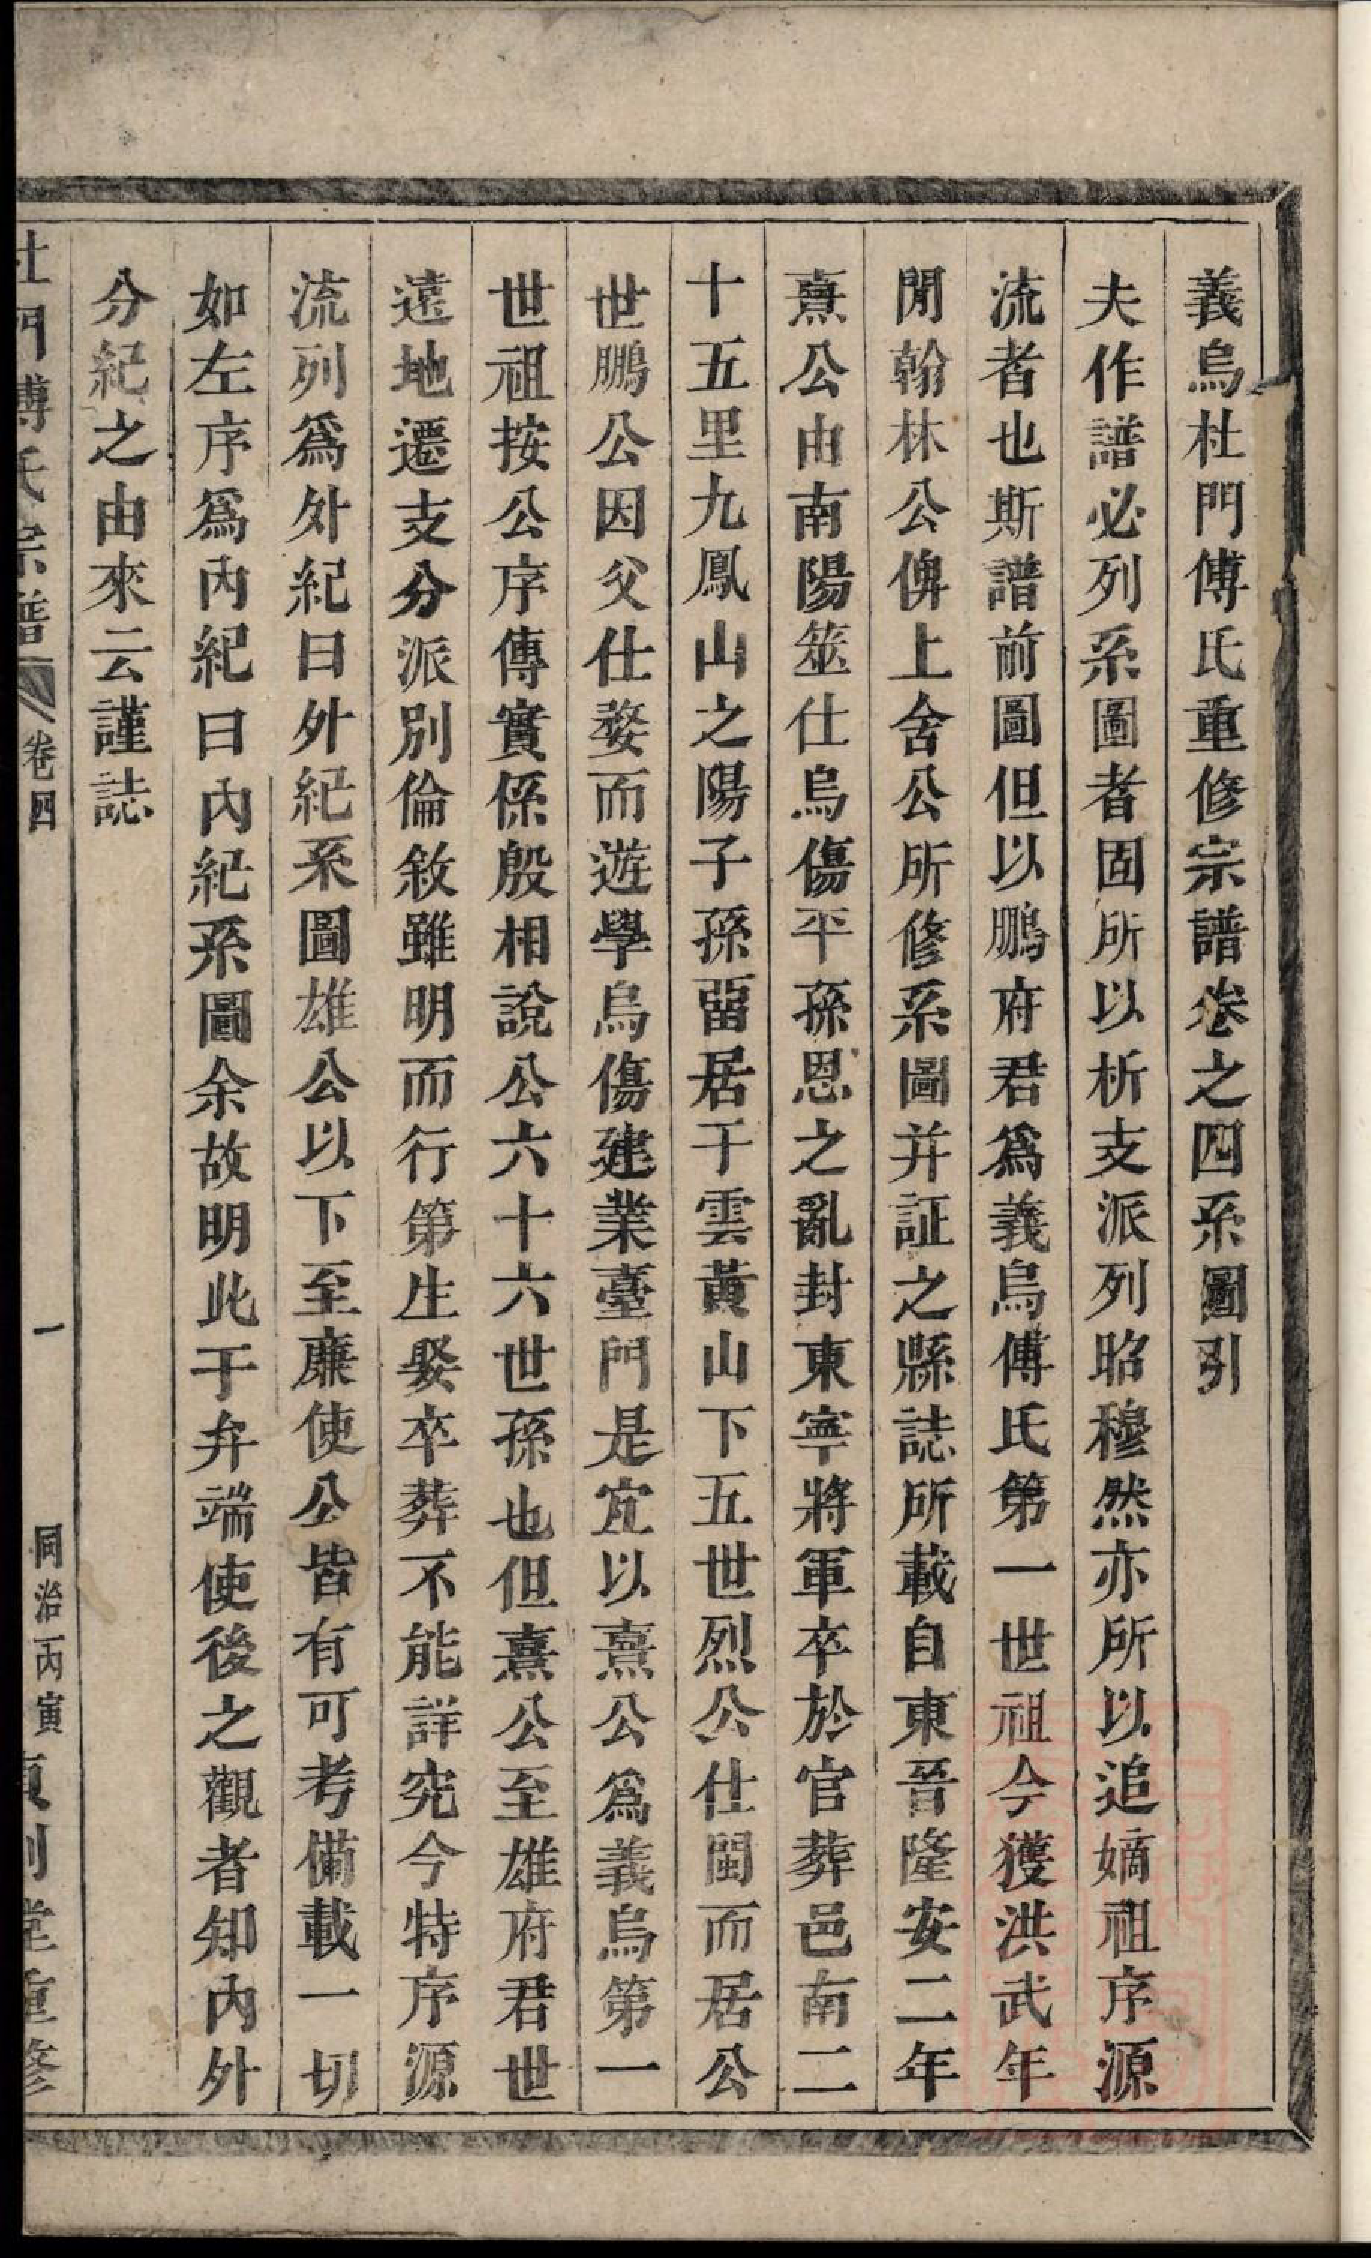 義烏杜門傅氏重修宗譜卷之四系圖引
夫作譜必列系圖者固所以析支派列昭穆然亦所以追嫡祖序源
流者也斯譜前圖但以鵬府君爲義烏傅氏第一世祖今獲洪武年
閒翰林公俾上舍公所修系圖并証之縣誌所載自東晉隆安二年
熹公由南陽筮仕烏傷平孫恩之亂封東寧將軍卒於官葬邑南二
十五里九鳳山之陽子孫畱居于雲黃山下五世烈公仕閩而居公
世鵬公因父仕婺而遊學烏傷建業臺門是宜以熹公爲義烏第一
世祖按公序傳實係殷相說公六十六世孫也但熹公至雄府君世
遠地遷支分派別倫敘雖明而行第生娶卒葬不能詳究今特序源
流列爲外紀曰外紀系圖雄公以下至廉使公皆有可考備載一切
如左序爲內紀曰內紀系圖余故明此于弁端使後之觀者知內外
分紀之由來云謹誌
杜門傅氏宗譜 卷四 一 同治丙寅 堂重修